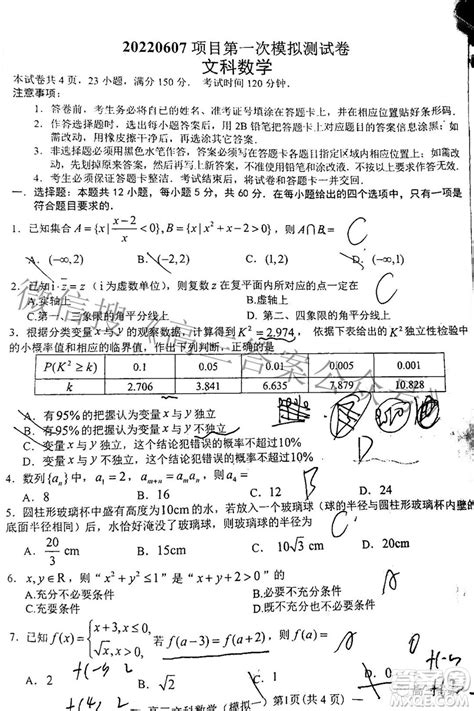 20220607 项目第一次模拟测试卷
文科数学
本试卷共 4 页，23 小题，满分 150 分. 考试时间 120 分钟.
注意事项：
1. 答卷前，考生务必将自己的姓名、准考证号填涂在答题卡上，并在相应位置贴好条形码.
2. 作答选择题时，选出每小题答案后，用 2B 铅笔把答题卡上对应题目的答案信息涂黑；如
需改动，用橡皮擦干净后，再选涂其它答案.
3. 非选择题必须用黑色水笔作答，答案必须写在答题卡各题目指定区域内相应位置上；如需改动，
先划掉原来答案，然后再写上新答案，不准使用铅笔和涂改液. 不按以上要求作答无效.
4. 考生必须保证答题卡整洁. 考试结束后，将试卷和答题卡一并交回.
一. 选择题：本题共 12 小题，每小题 5 分，共 60 分. 在每小题给出的四个选项中，只有一项是
符合题目要求的.
1. 已知集合 A={x|(x-2)/x<0}, B={x|x²+x-2>0}，则 A∩B= C
A. (-2,2) B. (-2,+∞) C. (1,2) D. (-∞,1)
2. 已知 i·z=z̄（i 为虚数单位），则复数 z 在复平面内对应的点在
A. 实轴上 B. 虚轴上
C. 第一、三象限的角平分线上 D. 第二、四象限的角平分线上
3. 根据分类变量 x 与 y 的观察数据，计算得到 K²=2.974， 依据下面给出的 K² 独立性检验中
的小概率值和相应的临界值，作出下列判断，正确的是
P(K²≥k) 0.1 0.05 0.01 0.005 0.001
k 2.706 3.841 6.635 7.879 10.828
A. 有 95% 的把握认为变量 x 与 y 独立
B. 有 95% 的把握认为变量 x 与 y 不独立
C. 变量 x 与 y 独立，这个结论犯错误的概率不超过 10%
D. 变量 x 与 y 不独立，这个结论犯错误的概率不超过 10%
D
4. 数列 {aₙ} 中，a₁=2，aₘ₊ₙ=aₘaₙ，则 a₄=
A. 8 B. 16 C. 12 D. 24
5. 圆柱形玻璃杯中盛有高度为 10cm 的水，若放入一个玻璃球（球的半径与圆柱形玻璃杯内壁的
底面半径相同）后，水恰好淹没了玻璃球，则玻璃球的半径为 C
A. 20/3 cm B. 15cm C. 10√3 cm D. 20cm
6. x,y∈R，则“x²+y²≤1”是“x≤1 且 y≤1”的 A
A. 充分不必要条件 B. 必要不充分条件
C. 充要条件 D. 既不充分也不必要条件
7. 已知 f(x)={x+3,x≤0 √x,x>0，若 f(a-3)=f(a+2)，则 f(a)= A
A. 2 B. √2 C. 1 D. 0
高三文科数学（模拟一） 第1页(共 4 页)